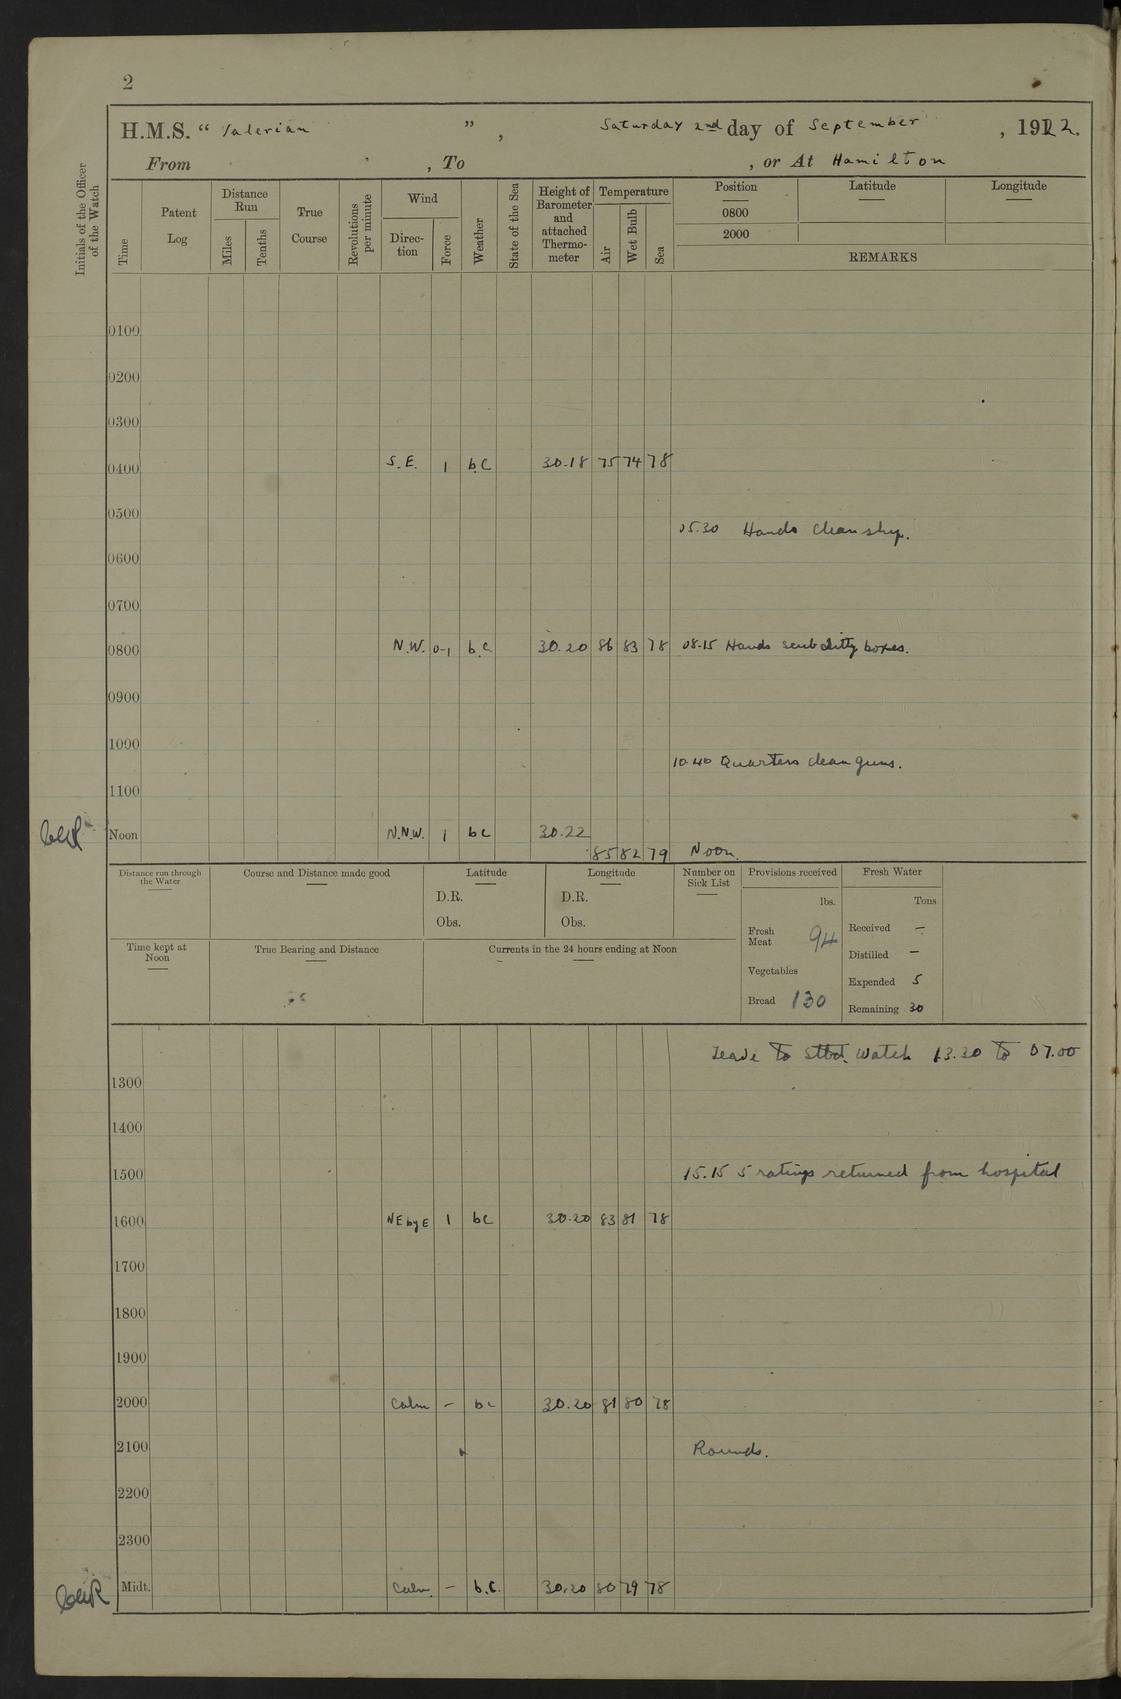 2
H.M.S. “ Valerian ” , Saturday 2nd day of September , 1922.
From , To , or At Hamilton
Initials of the Officer of the Watch
Time
Patent Log
Distance Run
Miles
Tenths
True Course
Revolutions per minute
Wind
Direc-tion
Force
Weather
State of the Sea
Height of Barometer and attached Thermo-meter
Temperature
Air
Wet Bulb
Sea
Position Latitude Longitude
0800
2000
REMARKS
0100
0200
0300
0400 S.E. 1 b.c 30.18 75 74 78
0500
05.30 Hands clean ship.
0600
0700
0800 N.W. 0-1 b.c 30.20 86 83 78 08.15 Hands scrub ditty boxes.
0900
1000
10.40 Quarters clean guns.
1100
Noon N.N.W. 1 bc 30.22
85 82 79 Noon.
Distance run through the Water
Course and Distance made good
Latitude
D.R.
Obs.
Longitude
D.R.
Obs.
Number on Sick List
Provisions received
lbs.
Fresh Meat 94
Vegetables
Bread 130
Fresh Water
Tons
Received –
Distilled –
Expended 5
Remaining 30
Time kept at Noon
True Bearing and Distance
Currents in the 24 hours ending at Noon
Leave to Stbd. Watch 13.30 to 07.00
1300
1400
1500 15.15 5 ratings returned from hospital
1600 NE by E 1 bc 30.20 83 81 78
1700
1800
1900
2000 Calm – bc 30.20 81 80 78
2100 Rounds.
2200
2300
Midt. Calm – b.c. 30.20 80 79 78